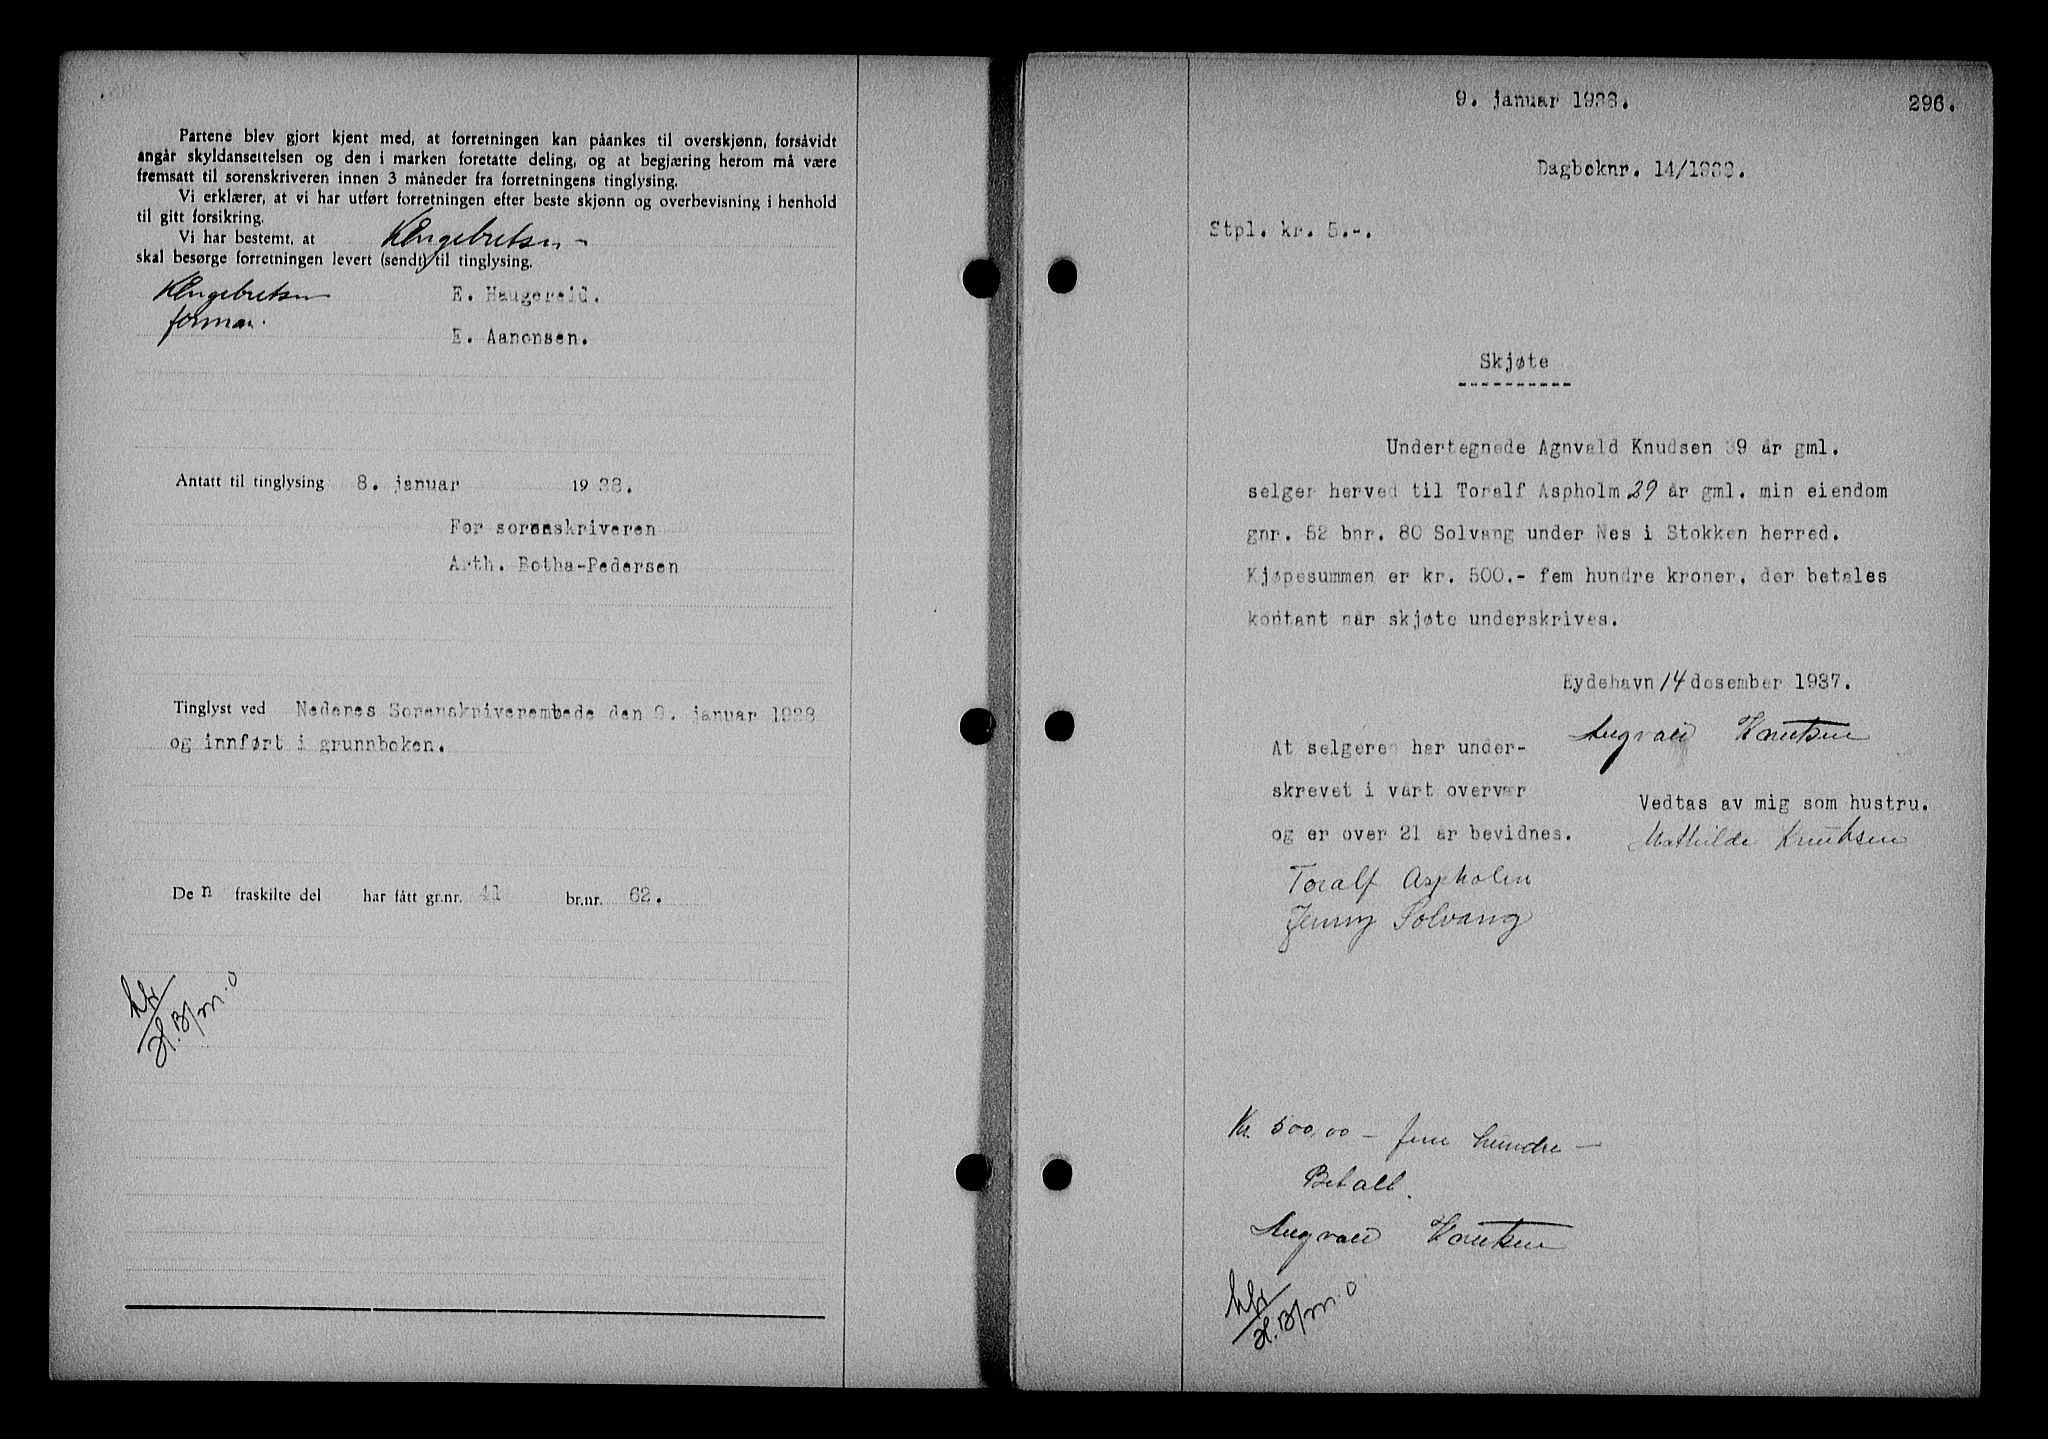 Partene blev gjort kjent med, at forretningen kan påankes til overskjønn, forsåvidt
angår skyldansettelsen og den i marken foretatte deling, og at begjæring herom må være
fremsatt til sorenskriveren innen 3 måneder fra forretningens tinglysing.
Vi erklærer, at vi har utført forretningen efter beste skjønn og overbevisning i henhold
til gitt forsikring.
Vi har bestemt, at KEngebretsen -
skal besørge forretningen levert (sendt) til tinglysing.
KEngebretsen E. Haugereid.
forman.
E. Aanonsen.
Antatt til tinglysing 8. januar 1938.
For sorenskriveren
Arth. Botha-Pedersen
Tinglyst ved Nedenes Sorenskriverembede den 9. januar 1938
og innført i grunnboken.
Den fraskilte del har fått gr.nr. 41 br.nr. 62.
9. januar 1938.
296.
Dagboknr. 14/1938.
Stpl. kr. 5.-.
Skjøte
----------
Undertegnede Agnvald Knudsen 39 år gml.
selger herved til Toralf Aspholm 29 år gml. min eiendom
gnr. 52 bnr. 80 Solvang under Nes i Stokken herred.
Kjøpesummen er kr. 500.- fem hundre kroner, der betales
kontant når skjøte underskrives.
Eydehavn 14 desember 1937.
Angvald Knutsen
At selgeren har under-
skrevet i vårt overvær
og er over 21 år bevidnes.
Vedtas av mig som hustru.
Mathilde Knutsen
Toralf Aspholm
Jenny Solvang
Kr. 500,00 - fem hundre -
Betalt.
Angvald Knutsen